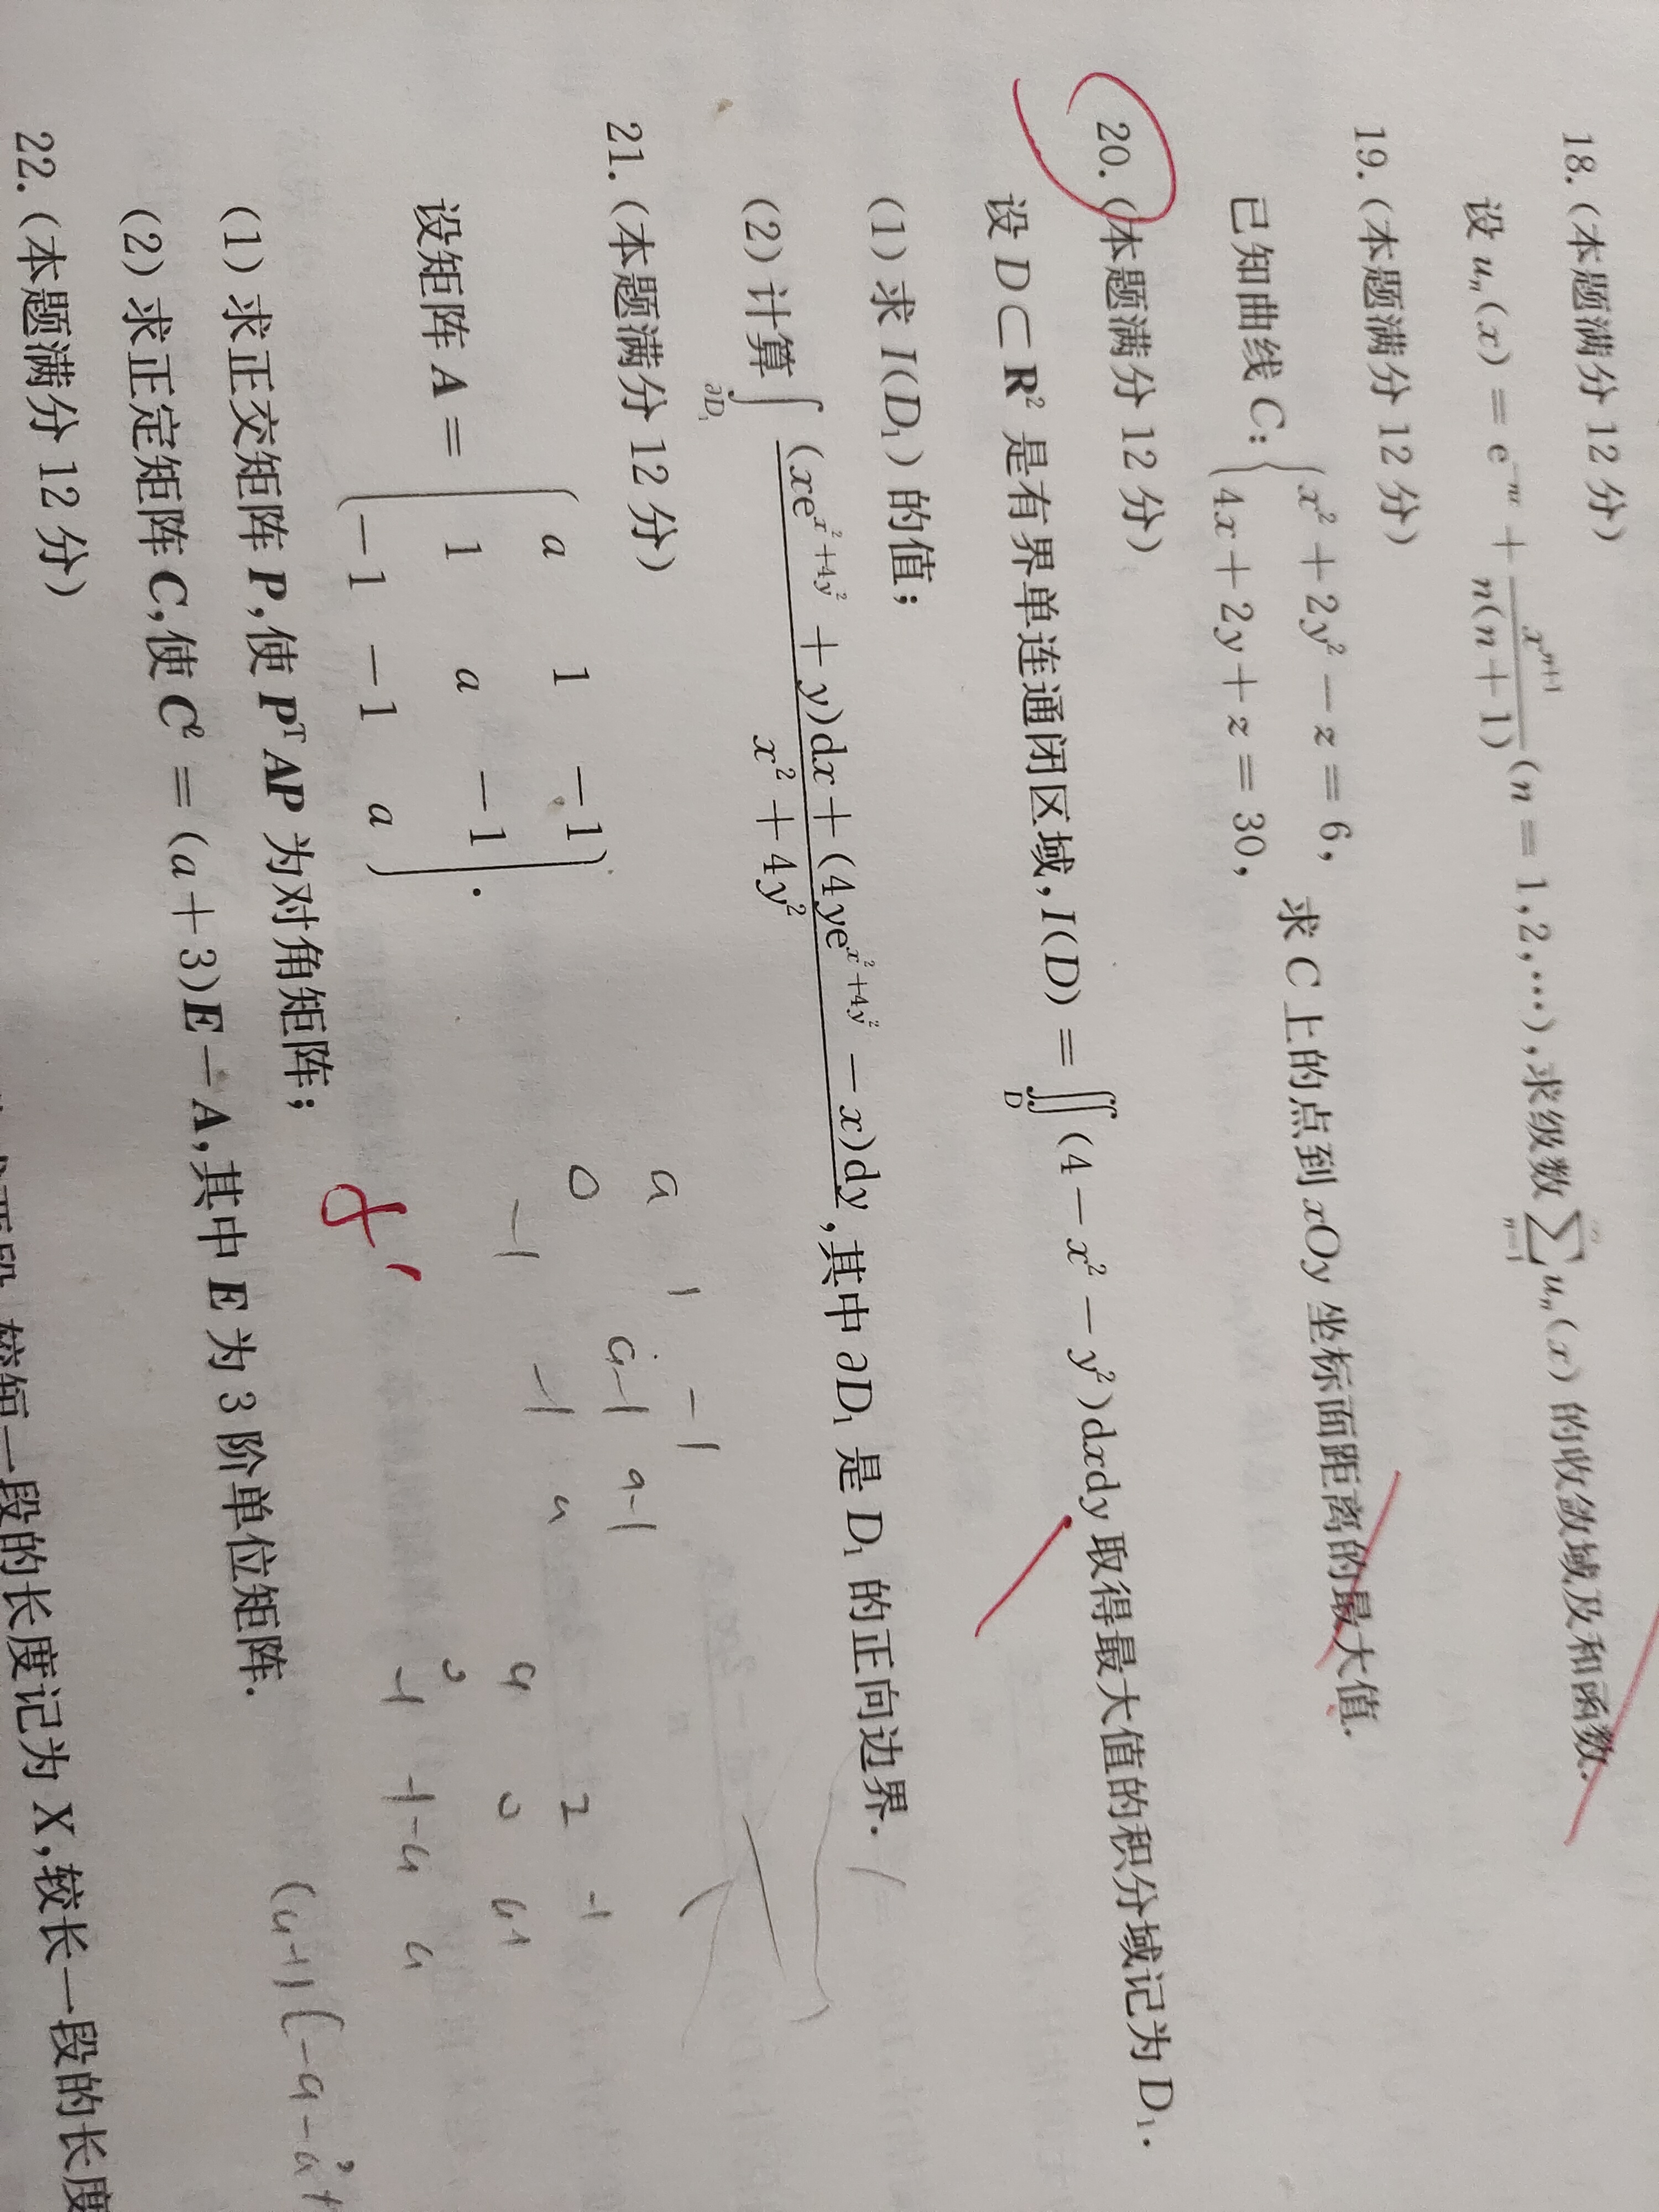 18. (本题满分 12 分)
设 uₙ(x) = e⁻ⁿˣ + xⁿ⁺¹/n(n+1) (n = 1,2,⋯), 求级数 ∑ₙ₌₁^∞ uₙ(x) 的收敛域及和函数.
19. (本题满分 12 分)
已知曲线 C: { x² + 2y² − z = 6, 4x + 2y + z = 30, 求 C 上的点到 xOy 坐标面距离的最大值.
20. (本题满分 12 分)
设 D ⊂ R² 是有界单连通闭区域, I(D) = ∬_D (4 − x² − y²)dxdy 取得最大值的积分域记为 D₁.
(1) 求 I(D₁) 的值;
(2) 计算 ∫_∂D₁ (xe^(x²+4y²) + y)dx + (4ye^(x²+4y²) − x)dy / x² + 4y², 其中 ∂D₁ 是 D₁ 的正向边界.
21. (本题满分 12 分)
a 1 −1
设矩阵 A = 1 a −1 .
−1 −1 a
(1) 求正交矩阵 P, 使 PᵀAP 为对角矩阵;
(2) 求正定矩阵 C, 使 C² = (a+3)E − A, 其中 E 为 3 阶单位矩阵.
a 1 −1
0 a−1 a−1
−1 −1 a
22. (本题满分 12 分)
较短一段的长度记为 X, 较长一段的长度